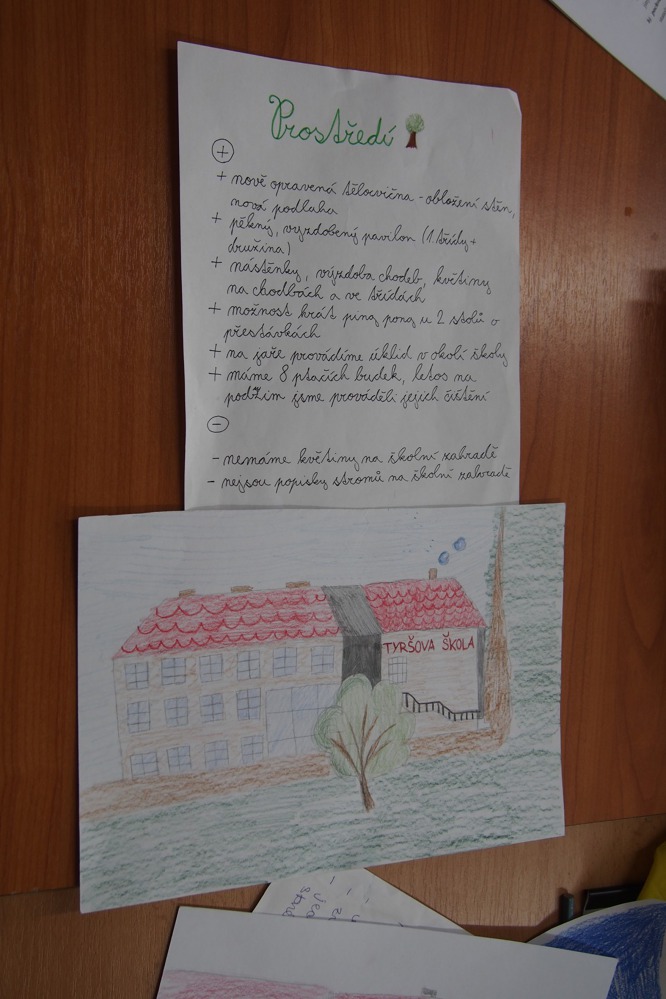 Prostředí
+
+ nově opravená tělocvična - obložení stěn,
nová podlaha
+ pěkný, vyzdobený pavilon (1. třídy +
družina)
+ nástěnky, výzdoba chodeb, květiny
na chodbách a ve třídách
+ možnost hrát ping pong u 2 stolů o
přestávkách
+ na jaře provádíme úklid v okolí školy
+ máme 8 ptačích budek, letos na
podzim jsme prováděli jejich čištění
-
- nemáme květiny na školní zahradě
- nejsou popisky stromů na školní zahradě
TYRŠOVA ŠKOLA